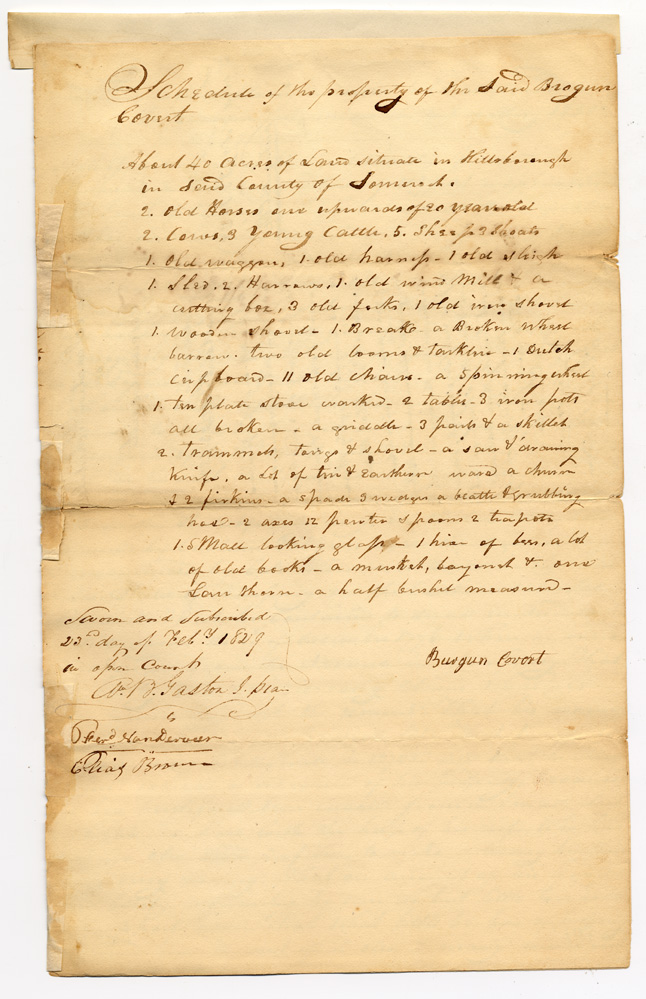 Schedule of the property of the Said Brogun
Covert
About 40 acres of Land situate in Hillsborough
in said County of Somerset.
2. old Horses one upwards of 20 years old
2. Cows, 3 Young Cattle, 5. Sheep 2 Shoats
1. old waggon, 1 old harness - 1 old sleigh
1. Sled. 2. Harrows, 1. old wind Mill & a
cutting box, 3 old forks, 1 old iron shovel
1. wooden shovel - 1. Breake - a Broken wheel
barrow. two old looms & - 1 Dutch
Cupboard - 11 old chairs - a spinning wheel
1. ten plate stove cracked - 2 tables - 3 iron pots
all broken - a griddle - 3 pails & a skillet
2. Trammels, tongs & shovel - a saw & drawing
Knife, a Lot of tin & Earthern ware a churn
& 2 firkins - a spade 3 wedges a beatle & grubbing
hoe - 2 axes 12 pewter spoons 2 teapots
1. Small looking glass - 1 hive of bees, a lot
of old books - a musket, bayonet & one
Lanthorn - a half bushel measure -
Sworn and Subscribed
23d. day of Feby. 1829
in open Court
Wm. B. Gaston J. Plea
Burgun Covort
Ferd. Vanderveer
Elias Brown